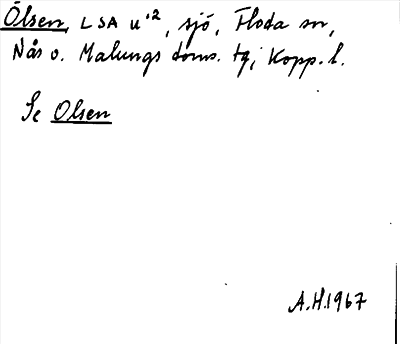 Ölsen, LSA u'2, sjö, Floda sn,
Nås o. Malungs doms. tg, Kopp. l.
Se Olsen
A.H.1967